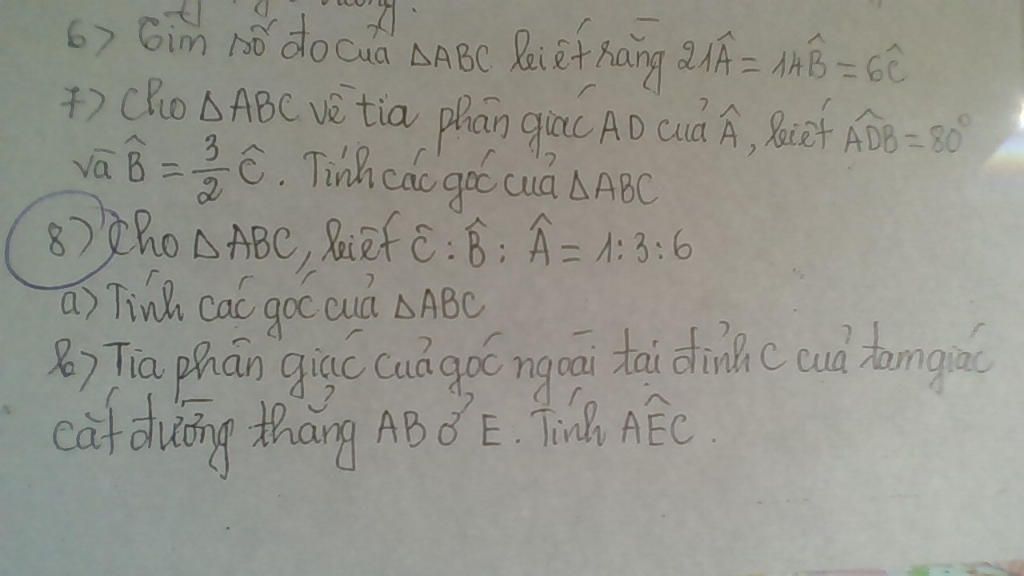 6) Tìm số đo của △ABC biết rằng 21Â = 14B̂ = 6Ĉ
7) Cho △ABC vẽ tia phân giác AD của Â, biết ADB̂ = 80°
và B̂ = 3/2 Ĉ. Tính các góc của △ABC
8) Cho △ABC, biết Ĉ : B̂ : Â = 1:3:6
a) Tính các góc của △ABC
b) Tia phân giác của góc ngoài tại đỉnh C của tam giác
cắt đường thẳng AB ở E. Tính AÊC.